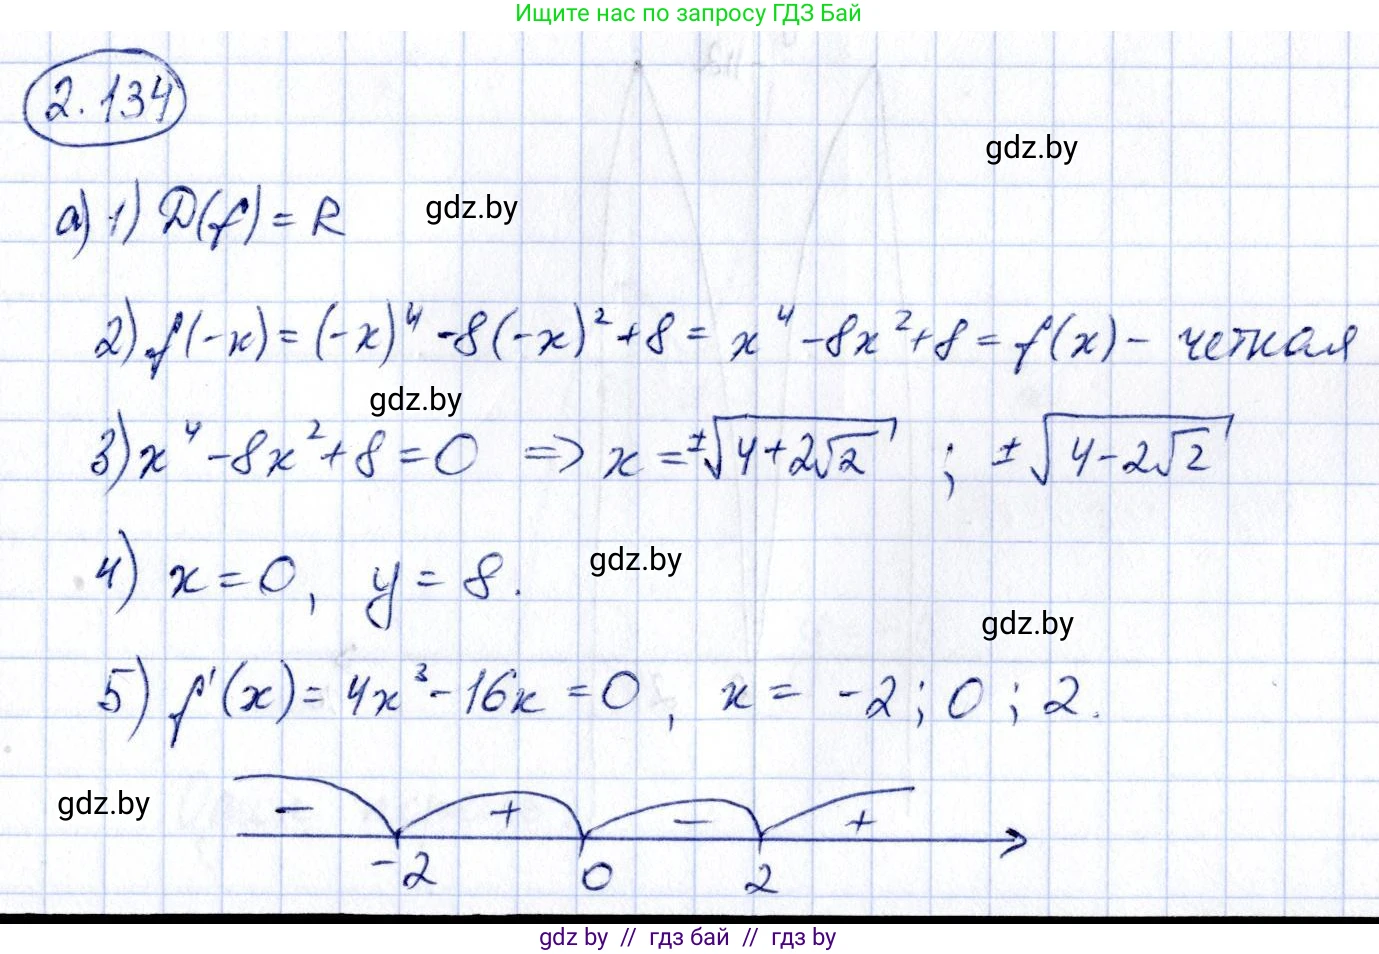 Ищите нас по запросу ГДЗ Бай
2.134
gdz.by
а) 1) D(f) = R
gdz.by
2) f(-x) = (-x)⁴ - 8(-x)² + 8 = x⁴ - 8x² + 8 = f(x) - четная
gdz.by
3) x⁴ - 8x² + 8 = 0 => x = ±√(4+2√2) ; ±√(4-2√2)
4) x = 0, y = 8.
gdz.by
gdz.by
5) f'(x) = 4x³ - 16x = 0, x = -2; 0; 2.
gdz.by
- + - +
-2 0 2
gdz by // гдз бай // гдз by